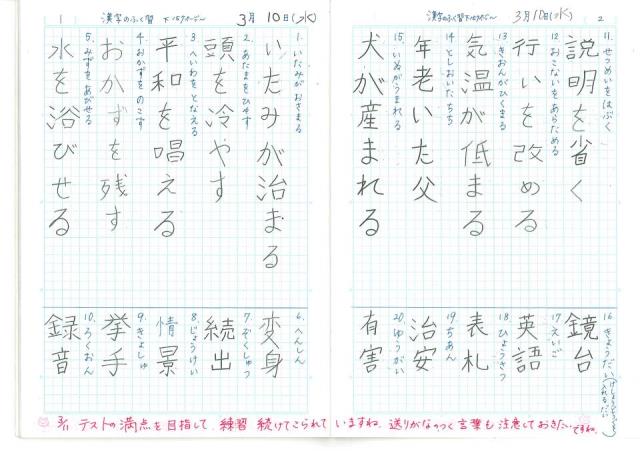 1
漢字のふく習
3月10日(水)
1. いたみがおさまる
いたみが治まる
2. あたまをひやす
頭を冷やす
3. へいわをとなえる
平和を唱える
4. おかずをのこす
おかずを残す
5. みずをあびせる
水を浴びせる
6. へんしん
変身
7. ぞくしゅつ
続出
8. じょうけい
情景
9. きょしゅ
挙手
10. ろくおん
録音
2
漢字のふく習
3月10日(水)
11. せつめいをはぶく
説明を省く
12 おこないをあらためる
行いを改める
13 きおんがひくまる
気温が低まる
14 としおいたちち
年老いた父
15. いぬがうまれる
犬が産まれる
16 きょうだい
鏡台
17 えいご
英語
18 ひょうさつ
表札
19. ちあん
治安
20. ゆうがい
有害
3/11 テストの満点を目指して、練習 続けてこられていますね。送りがなのつく言葉も注意しておきたいですね。